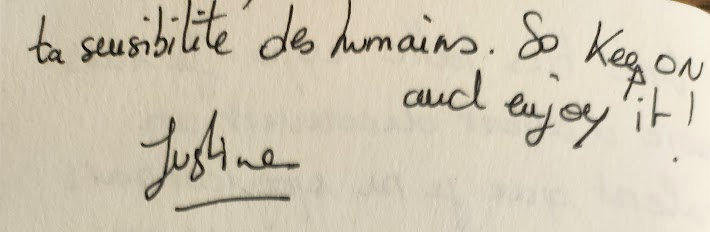 ta sensibilité des humains. So Keep ON
and enjoy it!
Justine